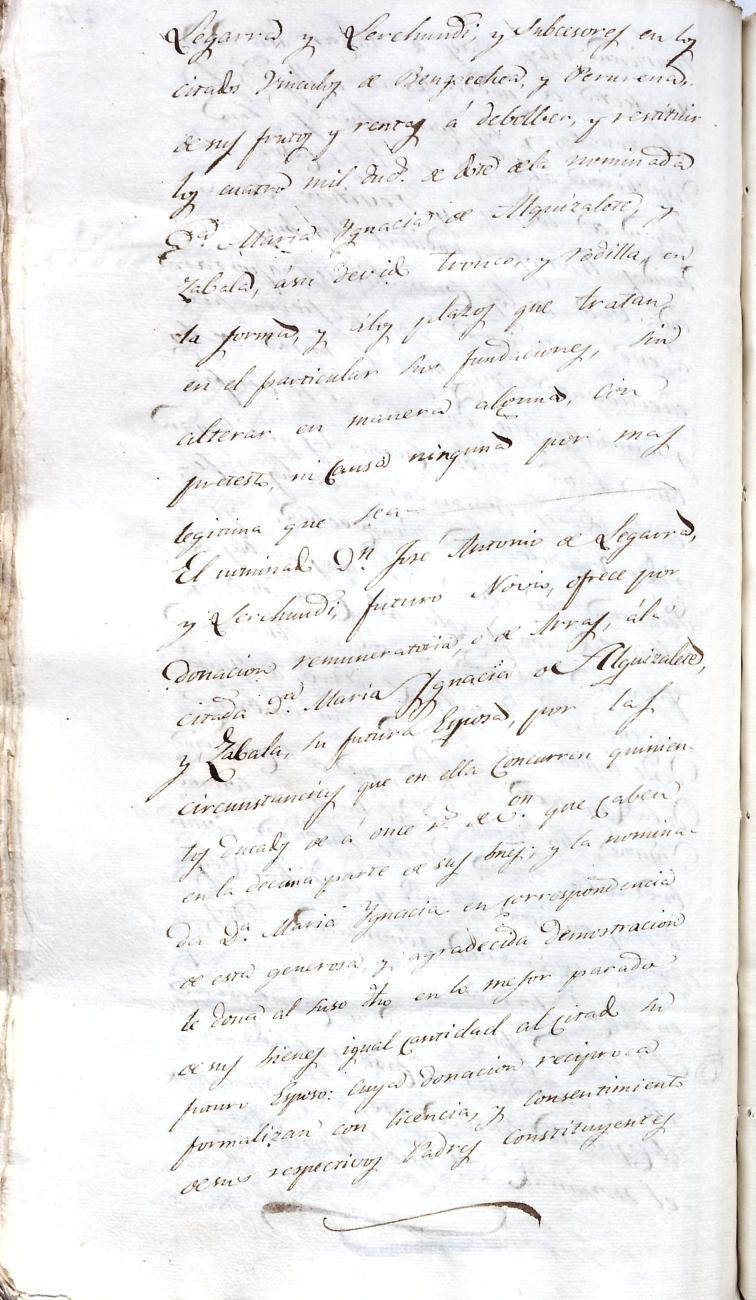 Legarra y Lerchundi, y Subcesores en los
citados Vinculos de Bengoechea, y Perurena,
de sus frutos y rentas á debolber, y restituir
los cuatro mil duc.s de dote de la nominada
D.a Maria Ygnacia de Alquizalete, y
Zabala, ásu devido tronco, y rodilla, en
la forma, y álos plazos que tratan
en el particular sus fundaciones, sin
alterar en manera alguna, con
pretesto, ni Causa ninguna por mas
legitima que sea
El nominado D.n José Antonio de Legarra,
y Lerchundi, futuro Novio, ofrece por
donacion remuneratoria, ó de Arras, ála
citada D.a Maria Ygnacia de Alquizalete,
y Zabala, su futura Esposa, por las
circunstancias que en ella Concurren quinien-
tos ducados de á once r.s de v.on que Caben
en la decima parte de sus bnes; y la nomina-
da D.a Maria Ygnacia en correspondencia
de esta generosa, y agradecida demostracion
le dona al suso dho en lo mejor parado
de sus bienes igual Cantidad al Citado su
futuro Esposo: cuya donacion reciproca
formalizan con licencia, y consentimiento
de sus respectivos Padres Constituyentes